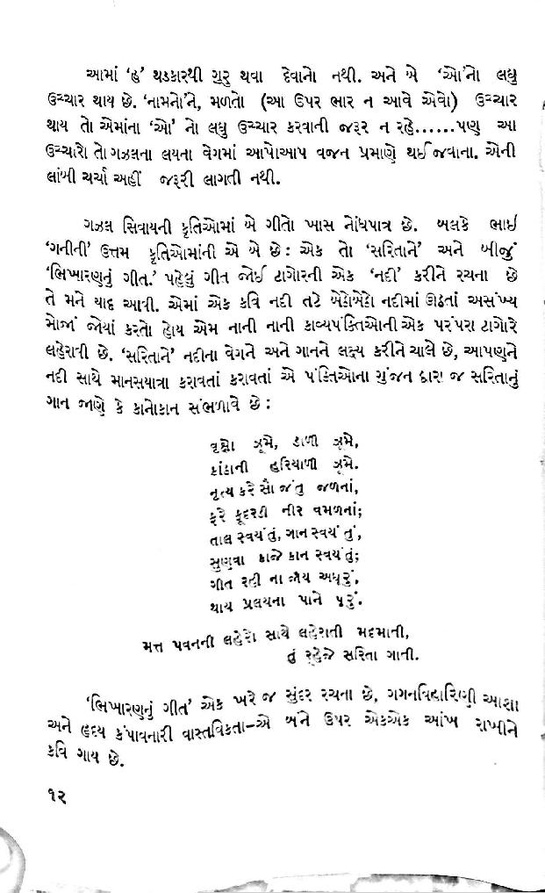 આમાં ‘હુ’ થડકારથી ગુરુ થવા દેવાનો નથી. અને બે ‘ઓ’નો લઘુ
ઉચ્ચાર થાય છે. ‘નામનો’ને, મળતો (આ ઉપર ભાર ન આવે એવો) ઉચ્ચાર
થાય તો એમાંના ‘ઓ’ નો લઘુ ઉચ્ચાર કરવાની જરૂર ન રહે......પણ આ
ઉચ્ચારો તો ગઝલના લયના વેગમાં આપોઆપ વજન પ્રમાણે થઈ જવાના. એની
લાંબી ચર્ચા અહીં જરૂરી લાગતી નથી.
ગઝલ સિવાયની કૃતિઓમાં બે ગીતો ખાસ નોંધપાત્ર છે. બલકે ભાઈ
‘ગનીની’ ઉત્તમ કૃતિઓમાંની એ બે છે : એક તો ‘સરિતાને’ અને બીજું
‘ભિખારણનું ગીત.’ પહેલું ગીત જોઈ ટાગોરની એક ‘નદી’ કરીને રચના છે
તે મને યાદ આવી. એમાં એક કવિ નદી તટે બેઠોબેઠો નદીમાં ઊઠતાં અસંખ્ય
મોજાં જોયાં કરતો હોય એમ નાની નાની કાવ્યપંક્તિઓની એક પરંપરા ટાગોરે
લહેરાવી છે. ‘સરિતાને’ નદીના વેગને અને ગાનને લક્ષ્ય કરીને ચાલે છે, આપણને
નદી સાથે માનસયાત્રા કરાવતાં કરાવતાં એ પંક્તિઓના ગુંજન દ્વારા જ સરિતાનું
ગાન જાણે કે કાનોકાન સંભળાવે છે :
વૃક્ષો ઝૂમે, ડાળી ઝૂમે,
કાંઠાની હરિયાળી ઝૂમે.
નૃત્ય કરે સૌ જંતુ જળનાં,
ફરે ફૂદરડી નીર વમળનાં;
તાલ સ્વયં તું, ગાન સ્વયં તું,
સુણવા કાજે કાન સ્વયં તું;
ગીત રહી ના જાય અધૂરું,
થાય પ્રલયના પાને પૂરું.
મત્ત પવનની લહેરો સાથે લહેરાતી મદમાતી,
તું રહેજે સરિતા ગાતી.
‘ભિખારણનું ગીત’ એક ખરે જ સુંદર રચના છે, ગગનવિહારિણી આશા
અને હૃદય કંપાવનારી વાસ્તવિકતા–એ બંને ઉપર એકએક આંખ રાખીને
કવિ ગાય છે.
૧૨